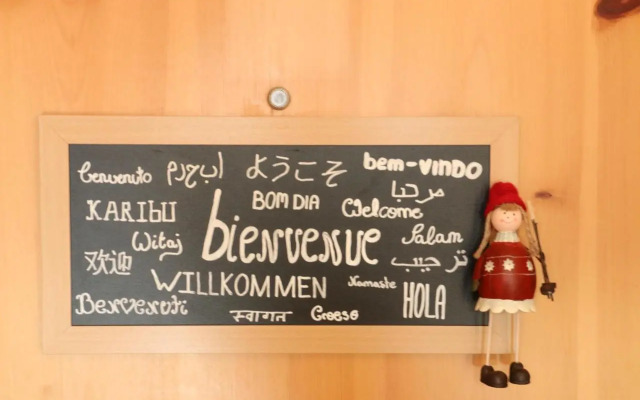 benvenuto
ようこそ
bem-VINDO
مرحبا
KARIBU
BOM DIA
Welcome
Witaj
bienvenue
Salam
欢迎
ترحيب
WILLKOMMEN
Namaste
HOLA
Benvenuti
स्वागत